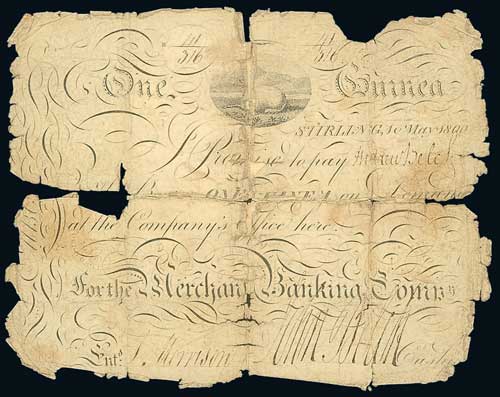 N 44/316 44/316
One Guinea
STIRLING, 10 May 1800
I Promise to pay
ONE GUINEA on Demand
at the Company's Office here.
For the Merchant Banking Compy
Entd. J. Morrison Cashr